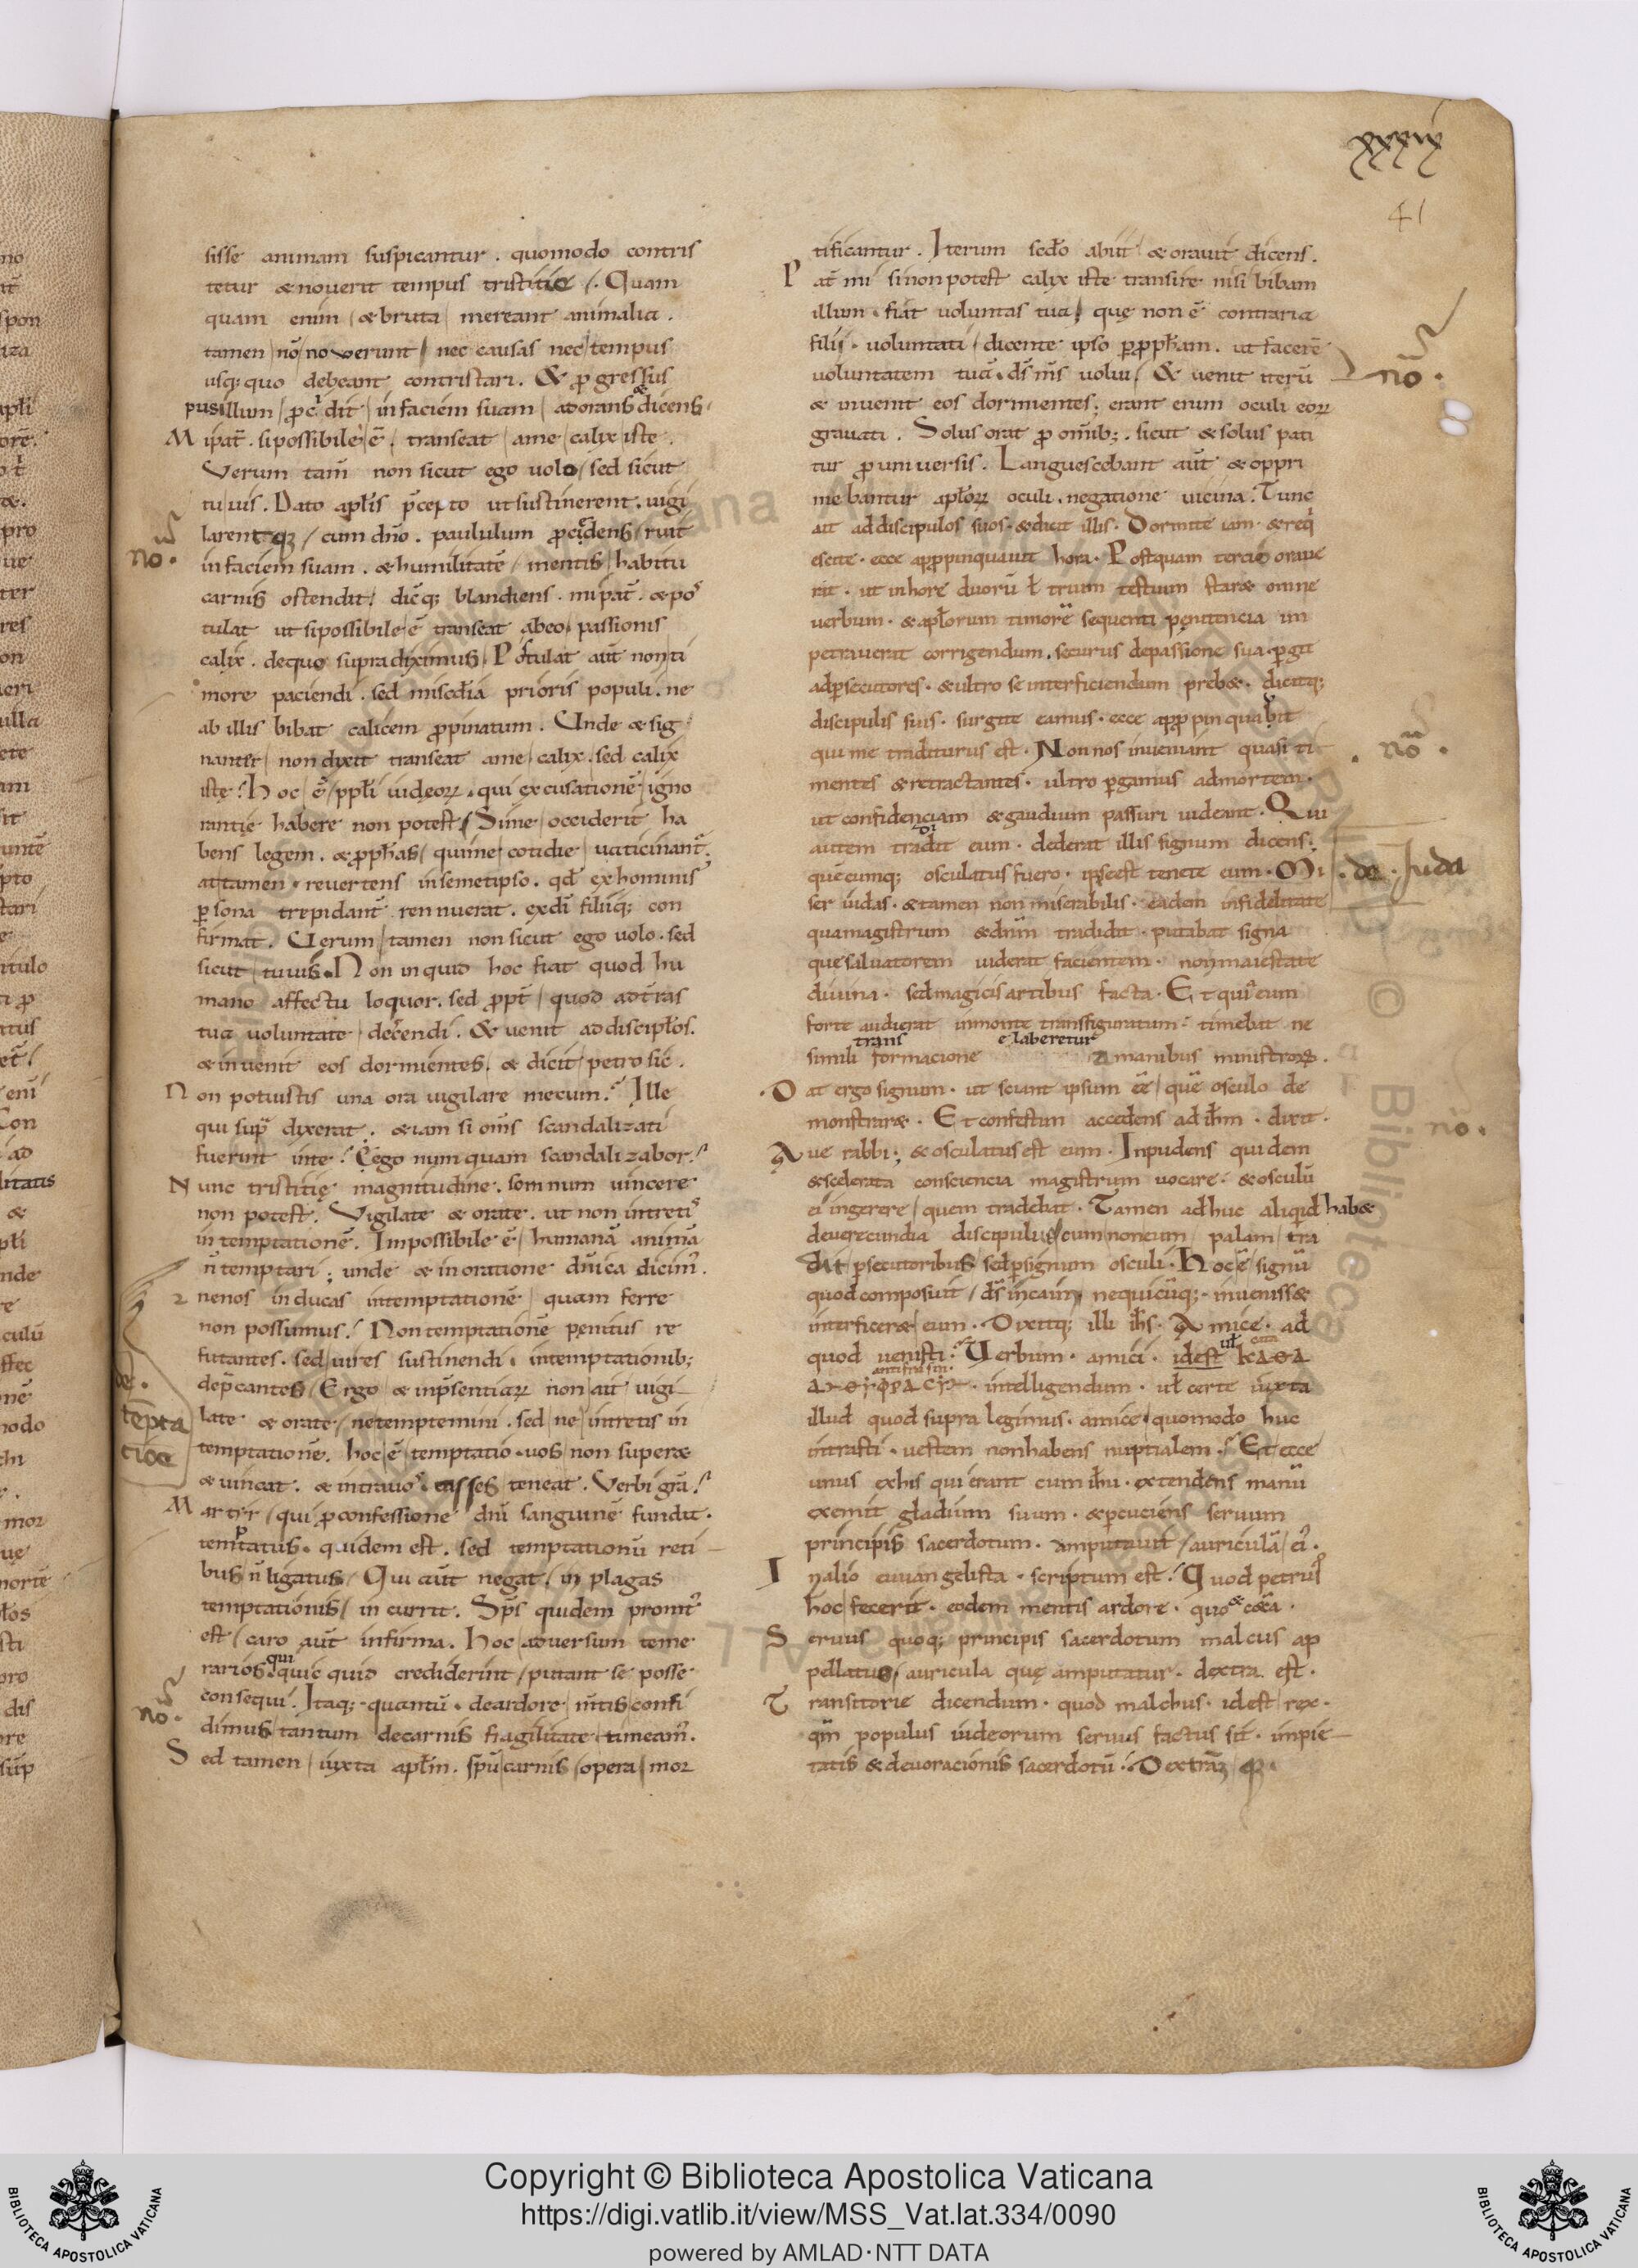 xxxxi
41
sisse animam suspicantur . quomodo contris
tetur & noverit tempus tristitie / . Quam
quam enim / & bruta mereant animalia .
tamen nō noverunt / nec causas nec tempus
usq; quo debeant contristari . & ꝓgressus
pusillum / ꝓcidit in faciem suam adorans & dicens .
Mi pat̄ . si possibile ē . transeat a me calix iste .
Verum tam̄ non sicut ego volo / sed sicut
tu uis . Dato apłis p̄cepto ut sustinerent . uigi
larentqꝫ / cum dn̄o . paululum ꝓcidens / ruit
in faciem suam . & humilitatē mentis habitu
carnis ostendit . dicēq; blandiens . mi pat̄ . & pos
tulat ut si possibile ē transeat ab eo passionis
calix . de quo supra diximus . Postulat aut̄ non ti
more paciendi . sed misc̄dia prioris populi . ne
ab illis bibat calicem ꝓpinatum . Unde & sig
nantr̄ non dixit transeat a me calix . sed calix
iste . Hoc ē / ppłi iudeoꝝ . qui excusationē igno
rantie habere non potest / Si me occiderit ha
bens legem . & ꝓph̄as / qui me cotidie uaticinant̄ .
attamen . revertens in semetipso . qđ ex hominis
ꝑsona trepidant̄ rennuerat . ex dī filiiq; con
firmat . Uerum tamen non sicut ego uolo . sed
sicut tu uis . Non inquid hoc fiat quod hu
mano affectu loquor . sed ꝓpt̄ / quod ad t̄ras
tua uoluntate decendi . & venit ad discipłos .
& invenit eos dormientes . & dicit petro sic .
Non potuistis una ora uigilare mecum . Ille
qui supͣ dixerat . & iam si om̄s scandalizati
fuerint in te . Ego numquam scandalizabor .
Nunc tristitię magnitudine . somnum uincere
non potest . Vigilate & orate . ut non intretis
in temptationē . Impossibile ē / humanā animā
n̄ temptari ; unde & in oratione dn̄ica dicim̉ .
2 ne nos inducas in temptationē / quam ferre
non possumus . Non temptationē penitus re
futantes . sed uires sustinendi . in temptationib;
dep̄cantes / Ergo & in p̄sentiaꝝ non ait uigi
late & orate / ne temptemini . sed ne intretis in
temptationē . hoc ē temptatio . uos non superet
& uincat . & intra suos casses teneat . Verbi grā .
Martir / qui ꝓ confessione dn̄i sanguinē fundit .
temptatus . quidem est . sed temptationū reti
bus n̄ ligatus / Qui aut̄ negat / in plagas
temptationis / incurrit . Sps̄ quidem promt̉
est / caro aut̄ infirma . Hoc adversum teme
rarios . qui quicquid crediderint / putant se posse
consequi . Itaq; quantū . de ardore m̄tis confi
dimus / tantum de carnis fragilitate timeam̉ .
Sed tamen / iuxta apłm . spū carnis / opera mor
no .
de .
tēpta
tioe
no .
tificantur . Iterum secd̄o abiit & oravit dicens .
Pat̄ mi si non potest calix iste transire nisi bibam
illum . fiat voluntas tua . quę non ē contraria
filii . voluntati / dicente ipso ꝑ ꝓph̄am . ut facerē
voluntatem tuā . ds̄ ms̄ uolui / & venit iterū
& invenit eos dormientes ; erant enim oculi eoꝝ
gravati . Solus orat ꝓ om̄ib; . sicut & solus pati
tur ꝓ universis . Languescebant aut̄ & oppri
mebantur apłoꝝ oculi . negatione vicina . Tunc
ait ad discipulos suos . & dicit illis . Dormite iam . & req̉
escite . ecce apꝓpinquauit hora . Postquam tercio oraue
rit . ut in hore duorū ł trium testium staret omne
uerbum . & apłorum timorē sequenti pęnitencia im
petraverat corrigendum . securus de passione sua ꝑgit
ad ꝑsecutores . & ultro se interficiendum prebet . dicitq;
discipulis suis . surgite eamus . ecce apꝓpinquabit
qui me traditurus est . Non nos inveniant quasi ti
mentes & retractantes . ultro ꝑgamus ad mortem .
ut confidenciam & gaudium passuri uideant . Qui
autem tradit eum . dederat illis signum dicens .
quēcumq; osculatus fuero . ipse est tenete eum . Mi
ser iudas . & tamen non miserabilis . eadem infidelitate
qua magistrum & dn̄m tradidit . putabat signa
que salvatorem viderat facientem . non maiestate
divina . sed magicis artibus facta . Et qui eum
forte audierat in monte transfiguratum . timebat ne
simili transformacione elaberetur a manibus ministroꝝ .
Dat ergo signum . ut sciant ipsum ēē / quē osculo de
monstraret . Et confestim accedens ad ih̄m . dixit .
Ave rabbi ; & osculatus est eum . Inpudens quidem
& scelerata consciencia magistrum vocare . & osculū
ei ingerere / quem tradebat . Tamen adhuc aliquid habet
de verecundia discipulus / cum non eum palam tra
dit ꝑsecutoribus / sed ꝑ signum osculi . Hoc ē / signū
quod composuit / ds̄ in cain nequicūq; . invenisset
interficeret eum . Dixitq; illi ih̄s . Amice . ad
quod venisti . Verbum . amici . idest
antifrasin
intelligendum . uł certe iuxta
illud quod supra legimus . amice quomodo huc
intrasti . vestem non habens nuptialem . Et ecce
unus ex his qui erant cum ih̄u . extendens manū
exemit gladium suum . & ꝑcuciens servum
principis sacerdotum . amputavit / auriculā eỉ .
In alio euuangelista . scriptum est . Quod petrus
hoc fecerit . eodem mentis ardore . quo & cet̄a .
Servus quoq; principis sacerdotum malcus ap
pellatus / auricula quę amputatur . dextra est .
Transitorie dicendum . quod malchus . idest rex .
qm̄ populus iudeorum servus factus sit . impie
tatis & devoracionis sacerdotū . Dextrāqꝫ
nō .
nō .
. de . Juda
no .
Copyright © Biblioteca Apostolica Vaticana
https://digi.vatlib.it/view/MSS_Vat.lat.334/0090
powered by AMLAD·NTT DATA
BIBLIOTECA APOSTOLICA VATICANA
BIBLIOTECA APOSTOLICA VATICANA